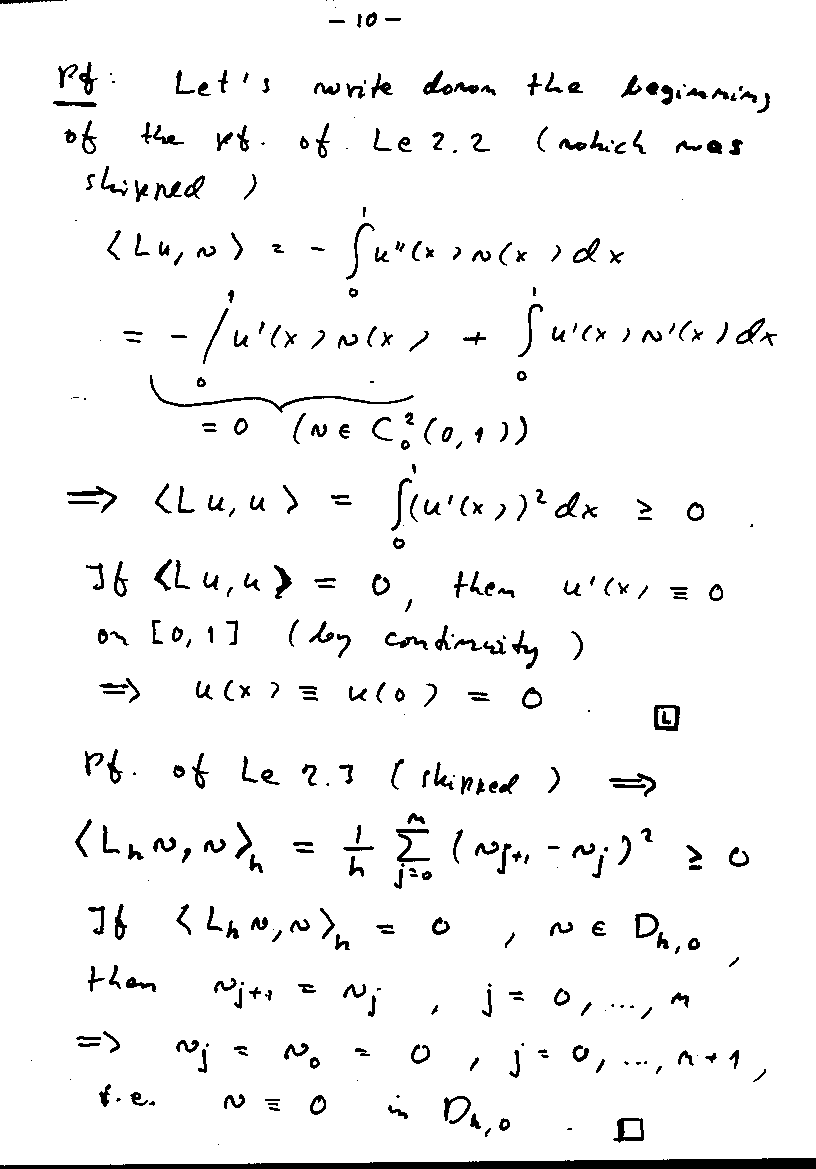 - 10 -
Pf: Let's write down the beginning
of the pf. of Le 2.2 (which was
skipped)
⟨Lu, v⟩ = - ∫₀¹ u''(x) v(x) dx
= - /₀¹ u'(x) v(x) + ∫₀¹ u'(x) v'(x) dx
= 0 (v ∈ C₀²(0,1))
⟹ ⟨Lu, u⟩ = ∫₀¹ (u'(x))² dx ≥ 0.
If ⟨Lu, u⟩ = 0, then u'(x) ≡ 0
on [0,1] (by continuity)
⟹ u(x) ≡ u(0) = 0. L
Pf. of Le 2.3 (skipped) ⟹
⟨L_h v, v⟩_h = 1/h ∑_{j=0}^{n} (v_{j+1} - v_j)² ≥ 0
If ⟨L_h v, v⟩_h = 0, v ∈ D_{h,0},
then v_{j+1} = v_j, j = 0, ..., n
⟹ v_j = v_0 = 0, j = 0, ..., n+1,
i.e. v ≡ 0 in D_{h,0}. □